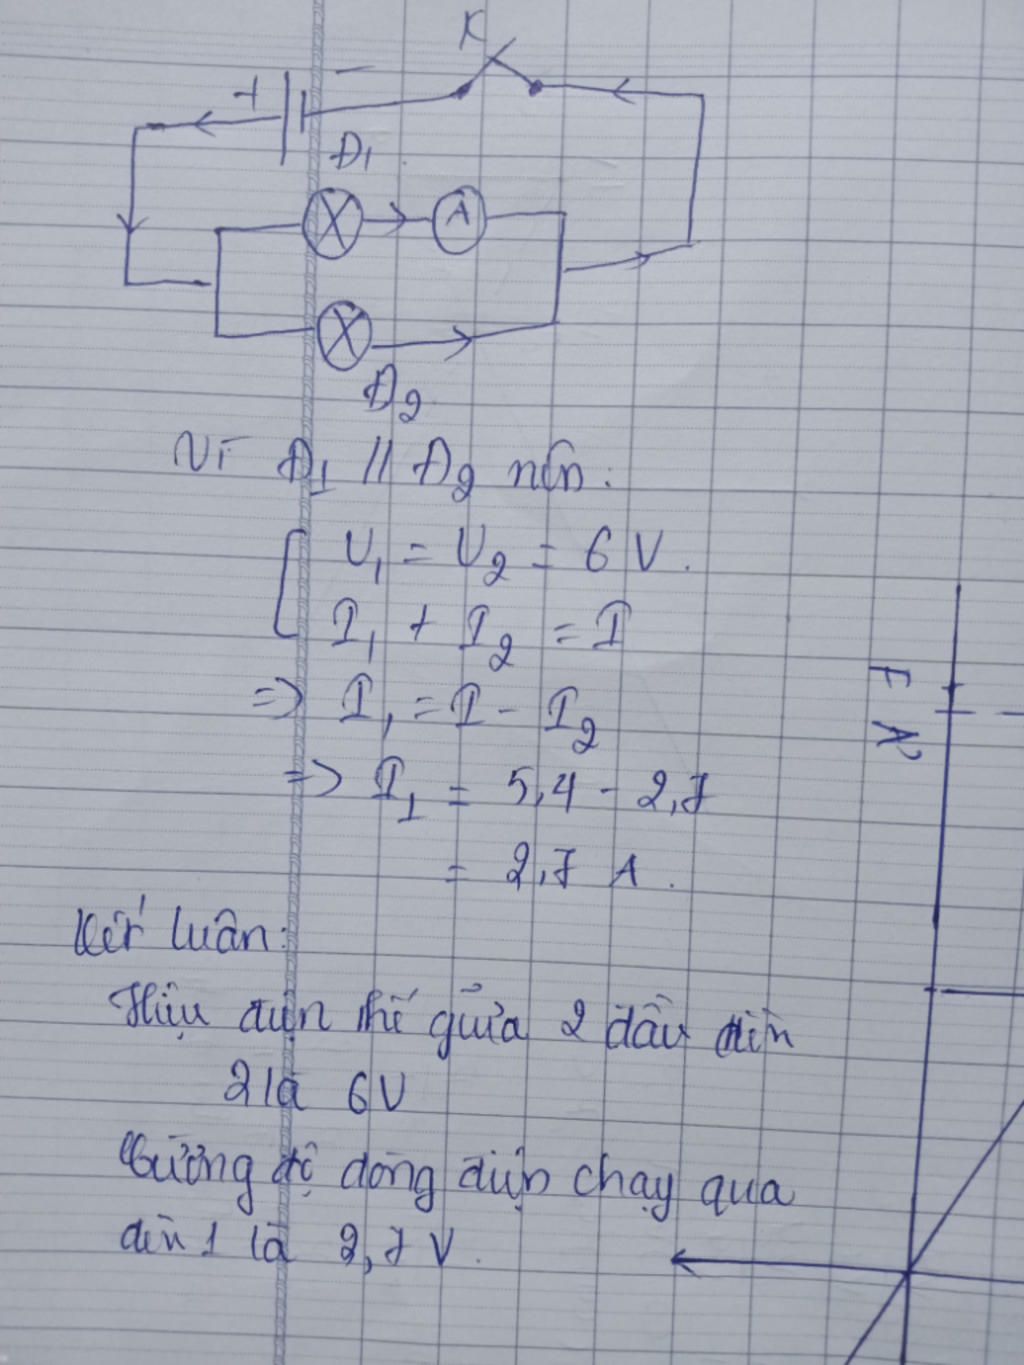 K
+ -
Đ1
A
Đ2
Vì Đ1 // Đ2 nên:
U1 = U2 = 6 V.
I1 + I2 = I
=> I1 = I - I2
=> I1 = 5,4 - 2,7
= 2,7 A.
Kết luận:
Hiệu điện thế giữa 2 đầu đèn
2 là 6V
Cường độ dòng điện chạy qua
đèn 1 là 2,7 V.